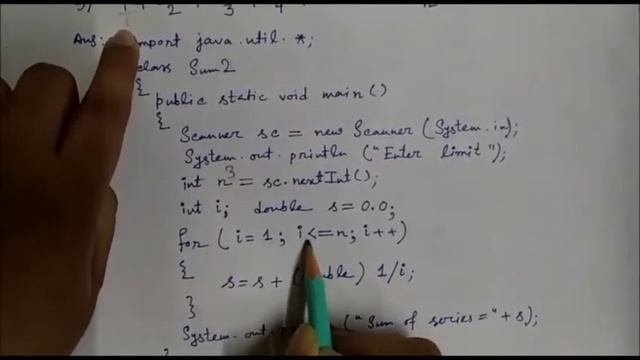 1 2 3 4
Ans: import java.util.*;
class Sum2
{
public static void main()
{
Scanner sc = new Scanner (System.in);
System.out.println ("Enter limit");
int n = sc.nextInt();
3
int i; double s=0.0;
for ( i=1; i<=n; i++)
{
s=s+ ( ble) 1/i;
}
System.out. ("Sum of series="+s);
}